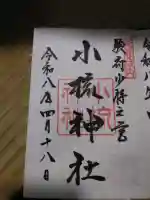 令和八
駿府少将之宮
小梳神社
令和八年四月十八日